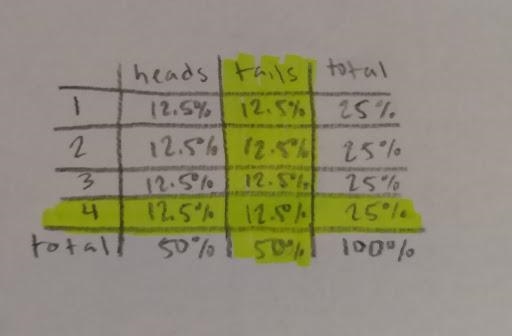 heads tails total
1 12.5% 12.5% 25%
2 12.5% 12.5% 25%
3 12.5% 12.5% 25%
4 12.5% 12.5% 25%
total 50% 50% 100%